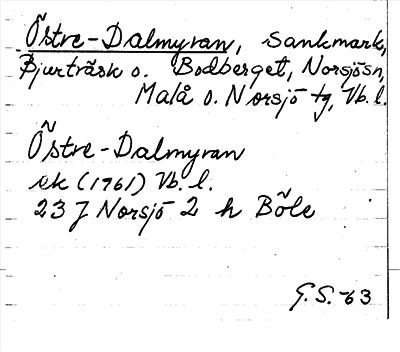 Östre-Dalmyran, sankmark,
Bjurträsk o. Bodberget, Norsjö sn,
Malå o. Norsjö tg, Vb. l.
Östre-Dalmyran
ek (1961) Vb. l.
23 J Norsjö 2 h Böle
G.S. -63